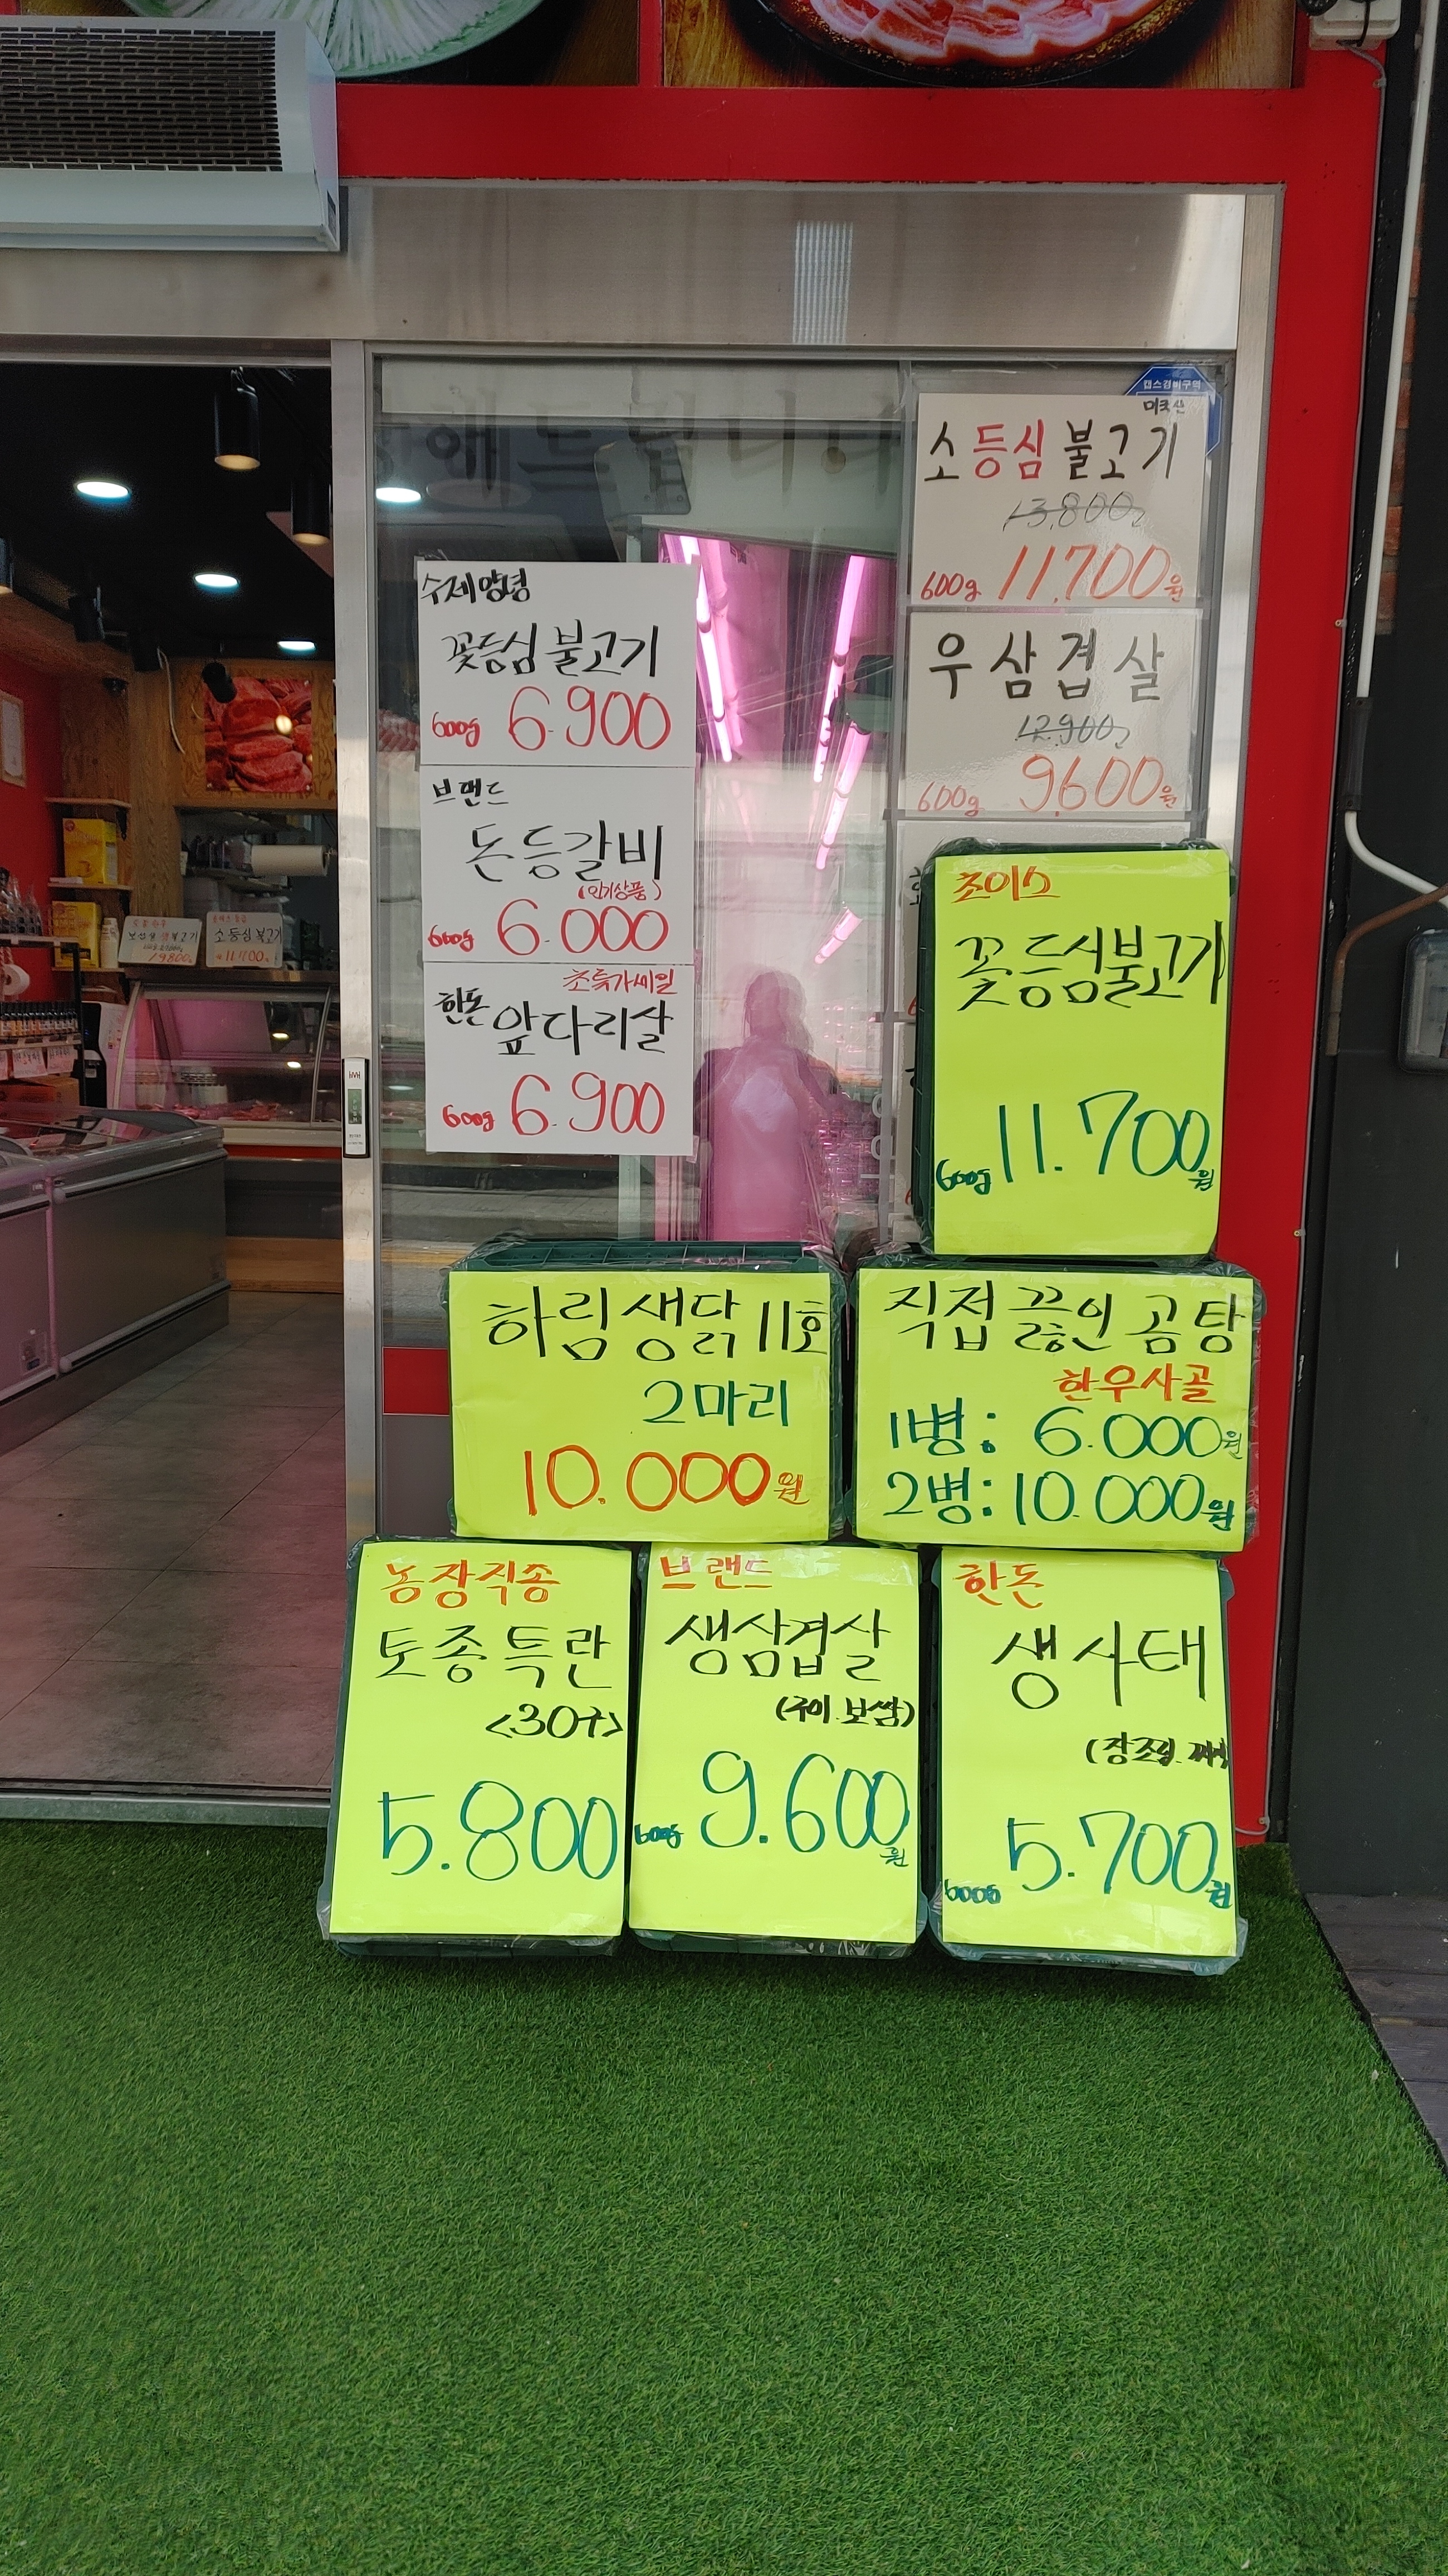 캡스경비구역
미국산
소등심 불고기
13,800
600g 11,700원
우삼겹살
12,900
600g 9,600원
수제양념
꽃등심 불고기
600g 6.900
브랜드
돈등갈비
(인기상품)
600g 6.000
초특가세일
한돈 앞다리살
600g 6.900
초이스
꽃등심불고기
600g 11.700원
하림생닭 11호
2마리
10.000원
직접 끓인 곰탕
한우사골
1병: 6.000원
2병: 10.000원
농장직송
토종특란
<30구>
5.800
브랜드
생삼겹살
(구이.보쌈)
600g 9.600원
한돈
생사태
(장조림.
600g 5.700원
소등심 불고기
11,700
19,800